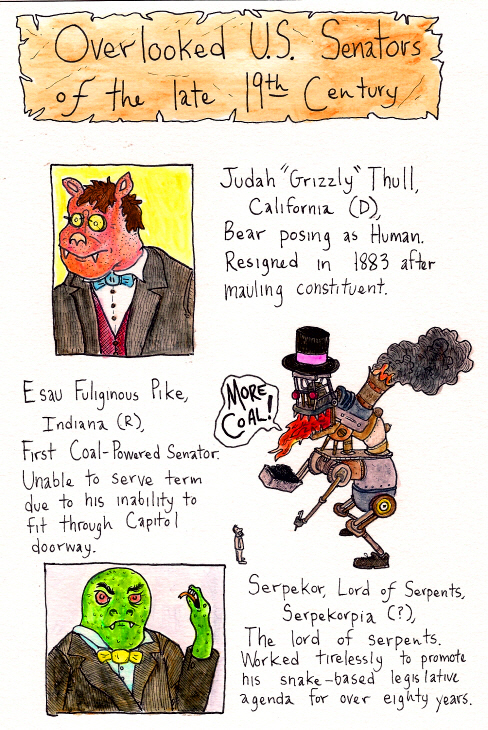 Overlooked U.S. Senators
of the late 19th Century
Judah "Grizzly" Thull,
California (D),
Bear posing as Human.
Resigned in 1883 after
mauling constituent.
MORE
COAL!
Esau Fuliginous Pike,
Indiana (R),
First Coal-Powered Senator.
Unable to serve term
due to his inability to
fit through Capitol
doorway.
Serpekor, Lord of Serpents,
Serpekorpia (?),
The lord of serpents.
Worked tirelessly to promote
his snake-based legislative
agenda for over eighty years.